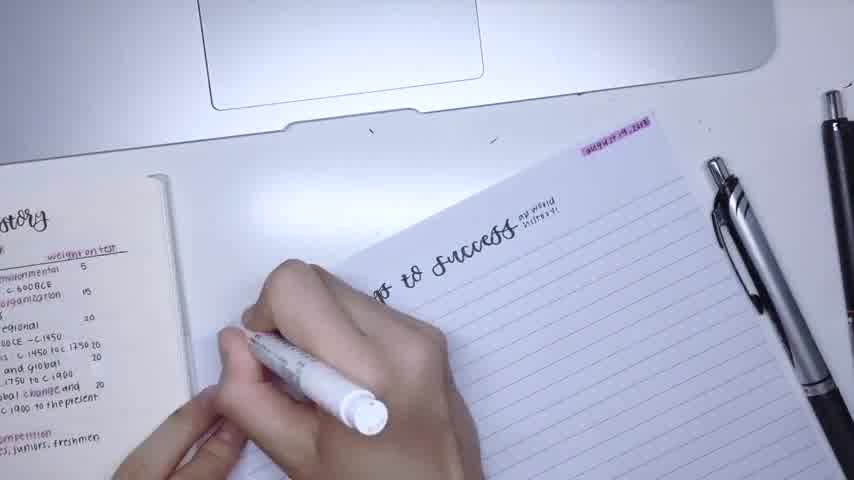 story
weight on test
environmental 5
c. 600BCE
organization 15
regional 20
00CE - c.1450
c.1450 to c.1750 20
and global 20
c.1750 to c.1900
global change and 20
c.1900 to the present
competition
juniors, freshmen
august 19, 2018
to success ap world
history!